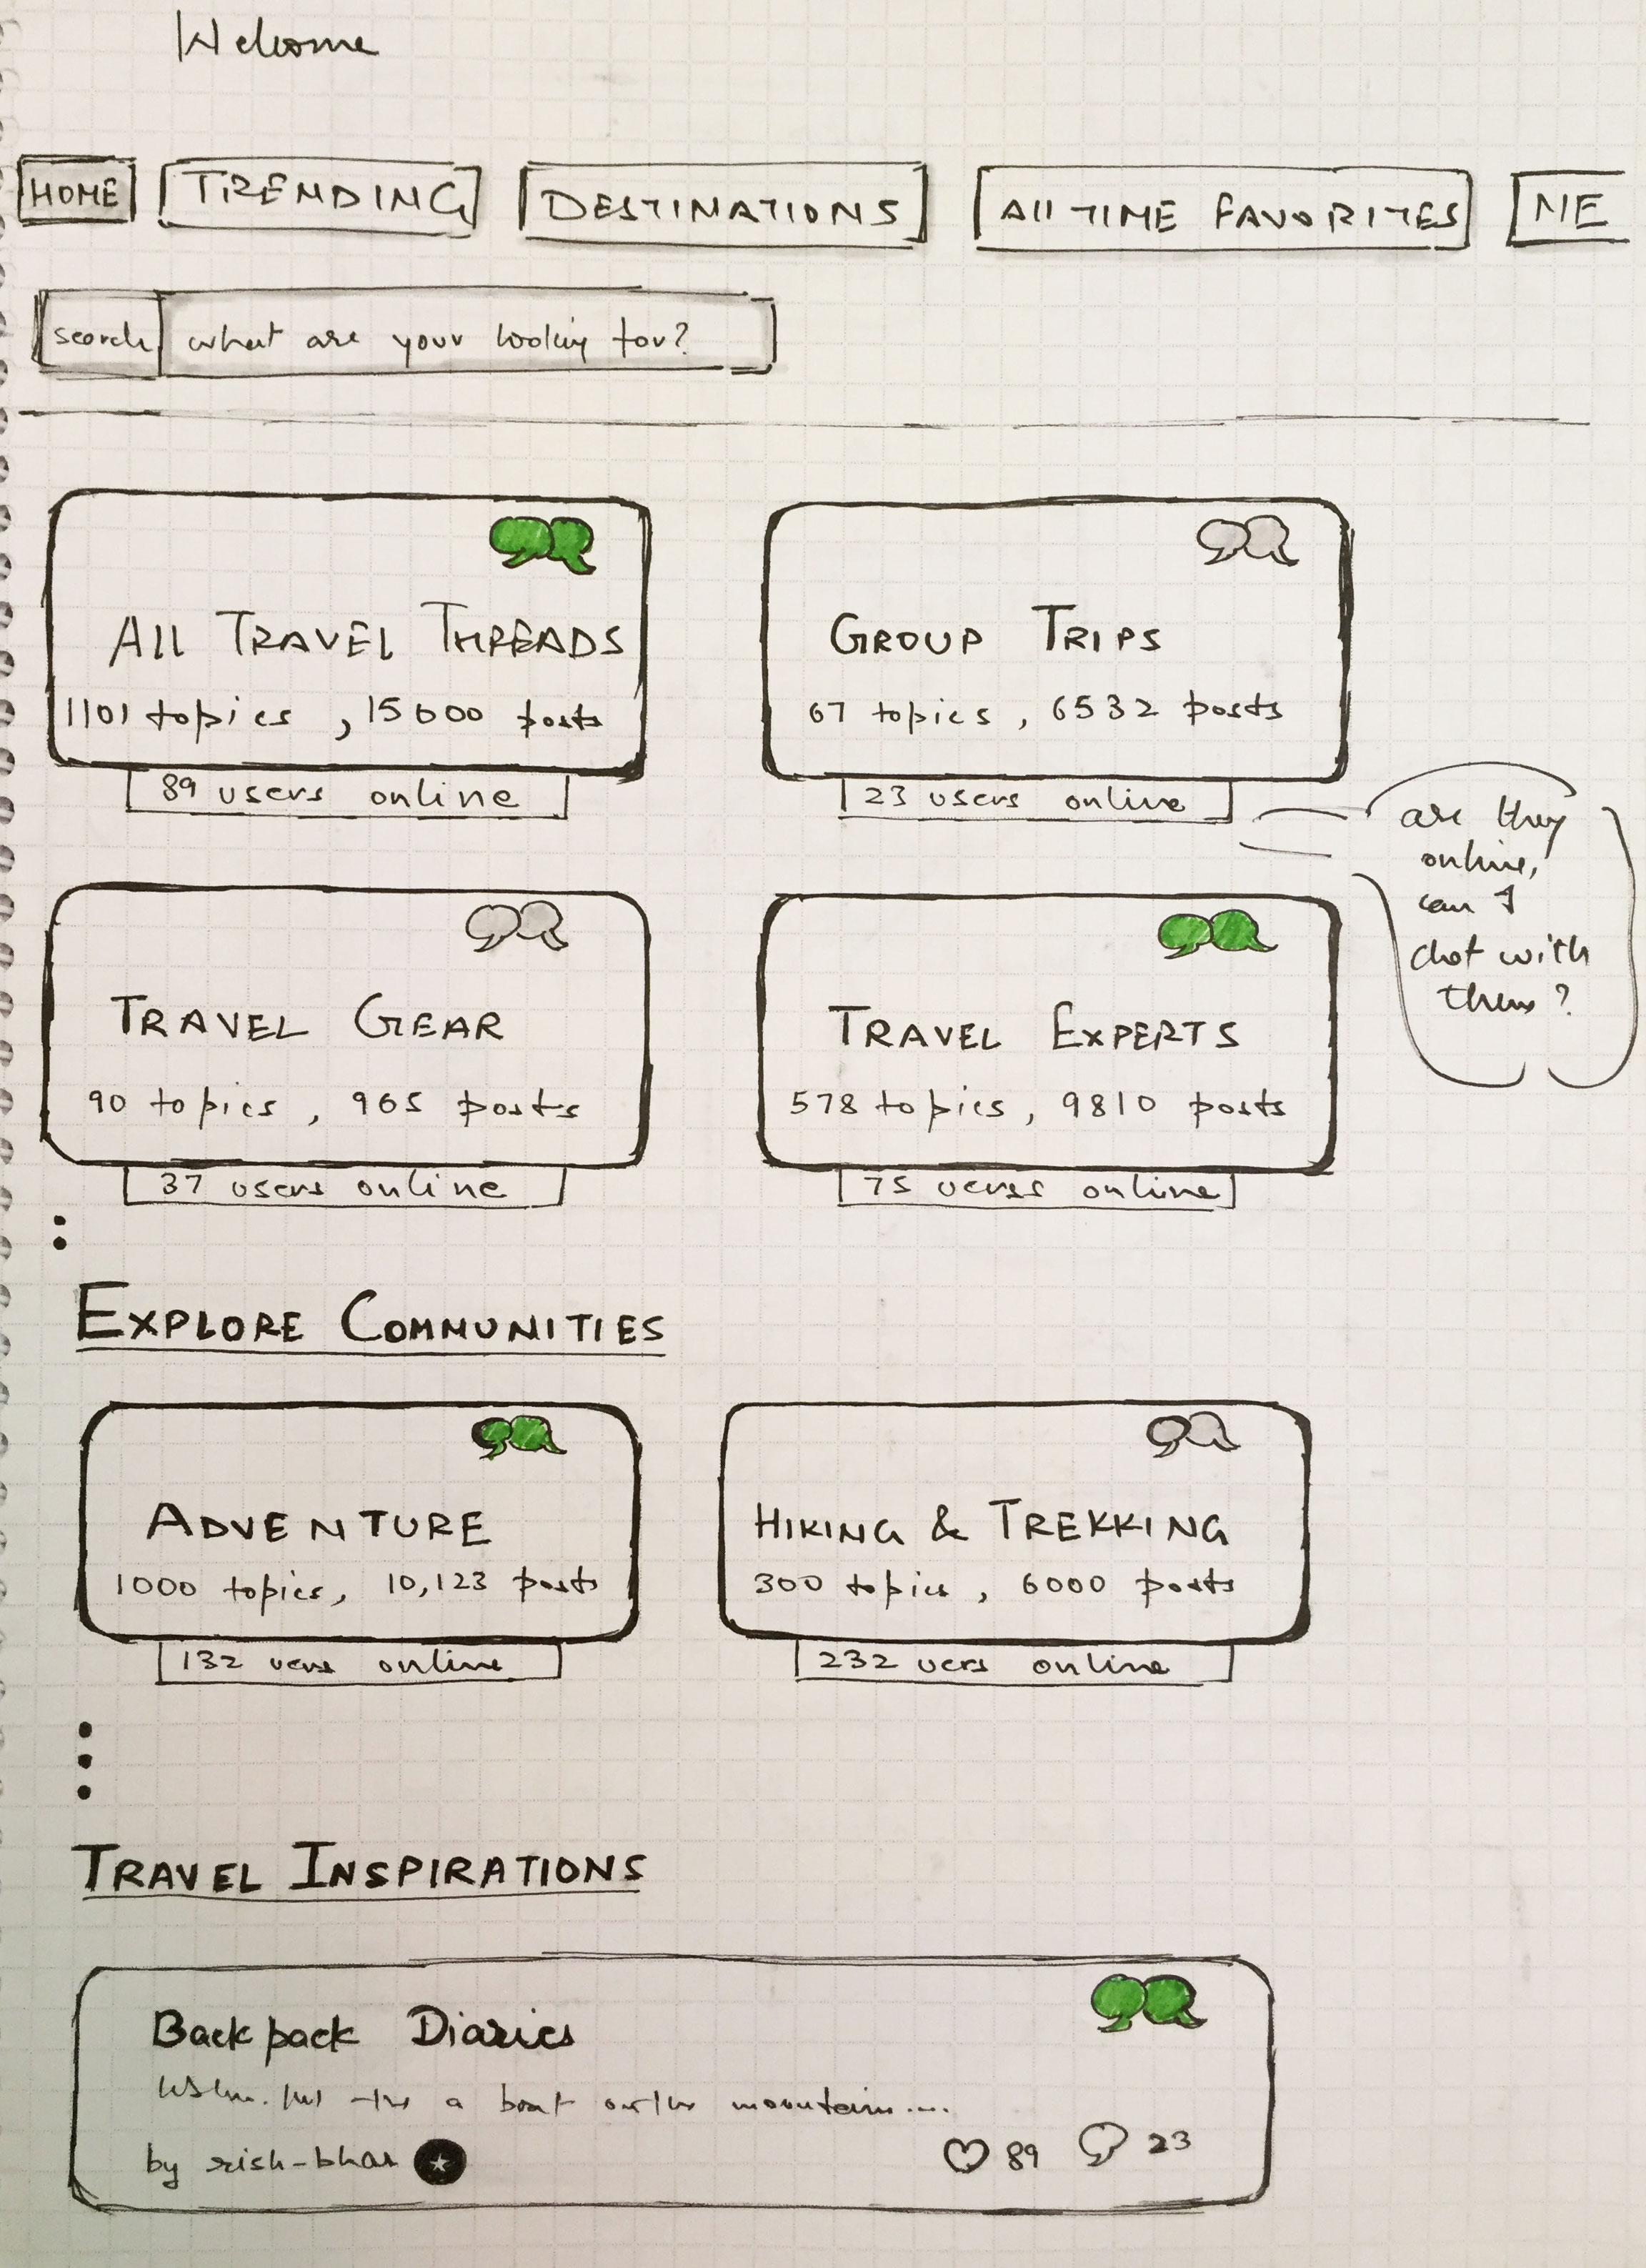 Welcome
HOME TRENDING DESTINATIONS All TIME FAVORITES ME
search what are your looking for?
All TRAVEL THREADS
1101 topics , 15000 posts
89 users online
GROUP TRIPS
67 topics , 6532 posts
23 users online
are they
online,
can I
chat with
them?
TRAVEL GEAR
90 topics , 965 posts
37 users online
TRAVEL EXPERTS
578 topics , 9810 posts
75 users online
:
EXPLORE COMMUNITIES
ADVENTURE
1000 topics, 10,123 posts
132 users online
HIKING & TREKKING
300 topics , 6000 posts
232 users online
TRAVEL INSPIRATIONS
Backpack Diaries
a boat mountains....
by rish-bhar
89 23